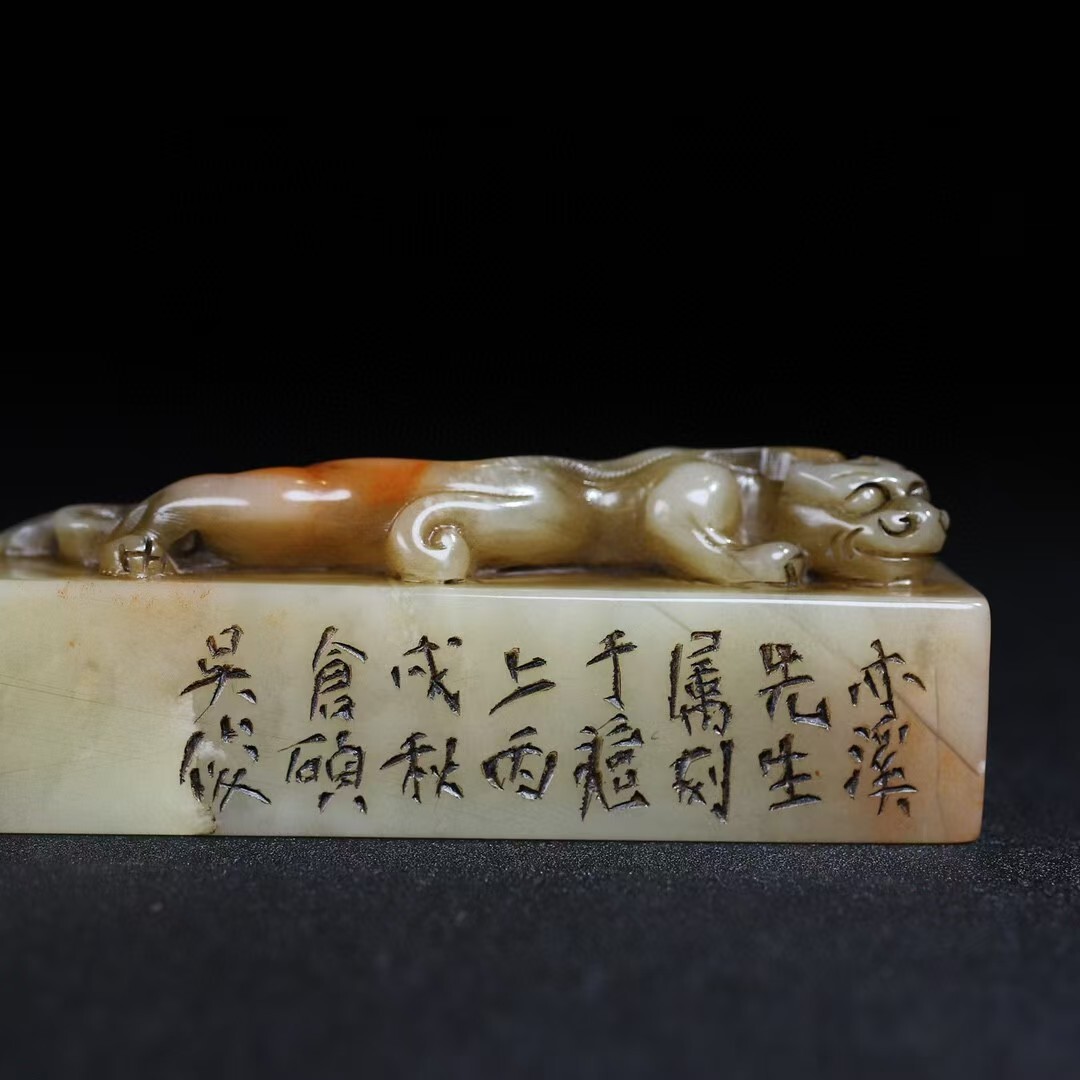 亦溪
先生
属刻
于滬
上丙
戌秋
倉碩
吳俊